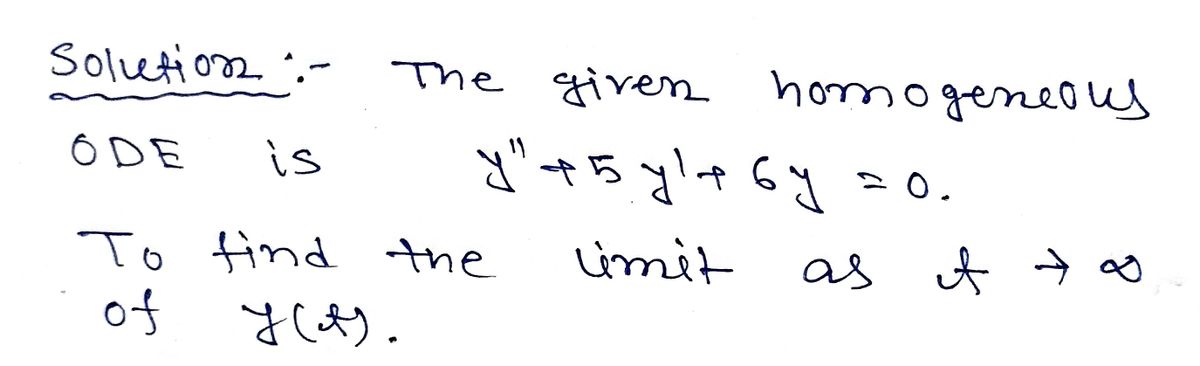 Solution :- The given homogeneous
ODE is y'' + 5y' + 6y = 0.
To find the limit as t → ∞
of y(t).